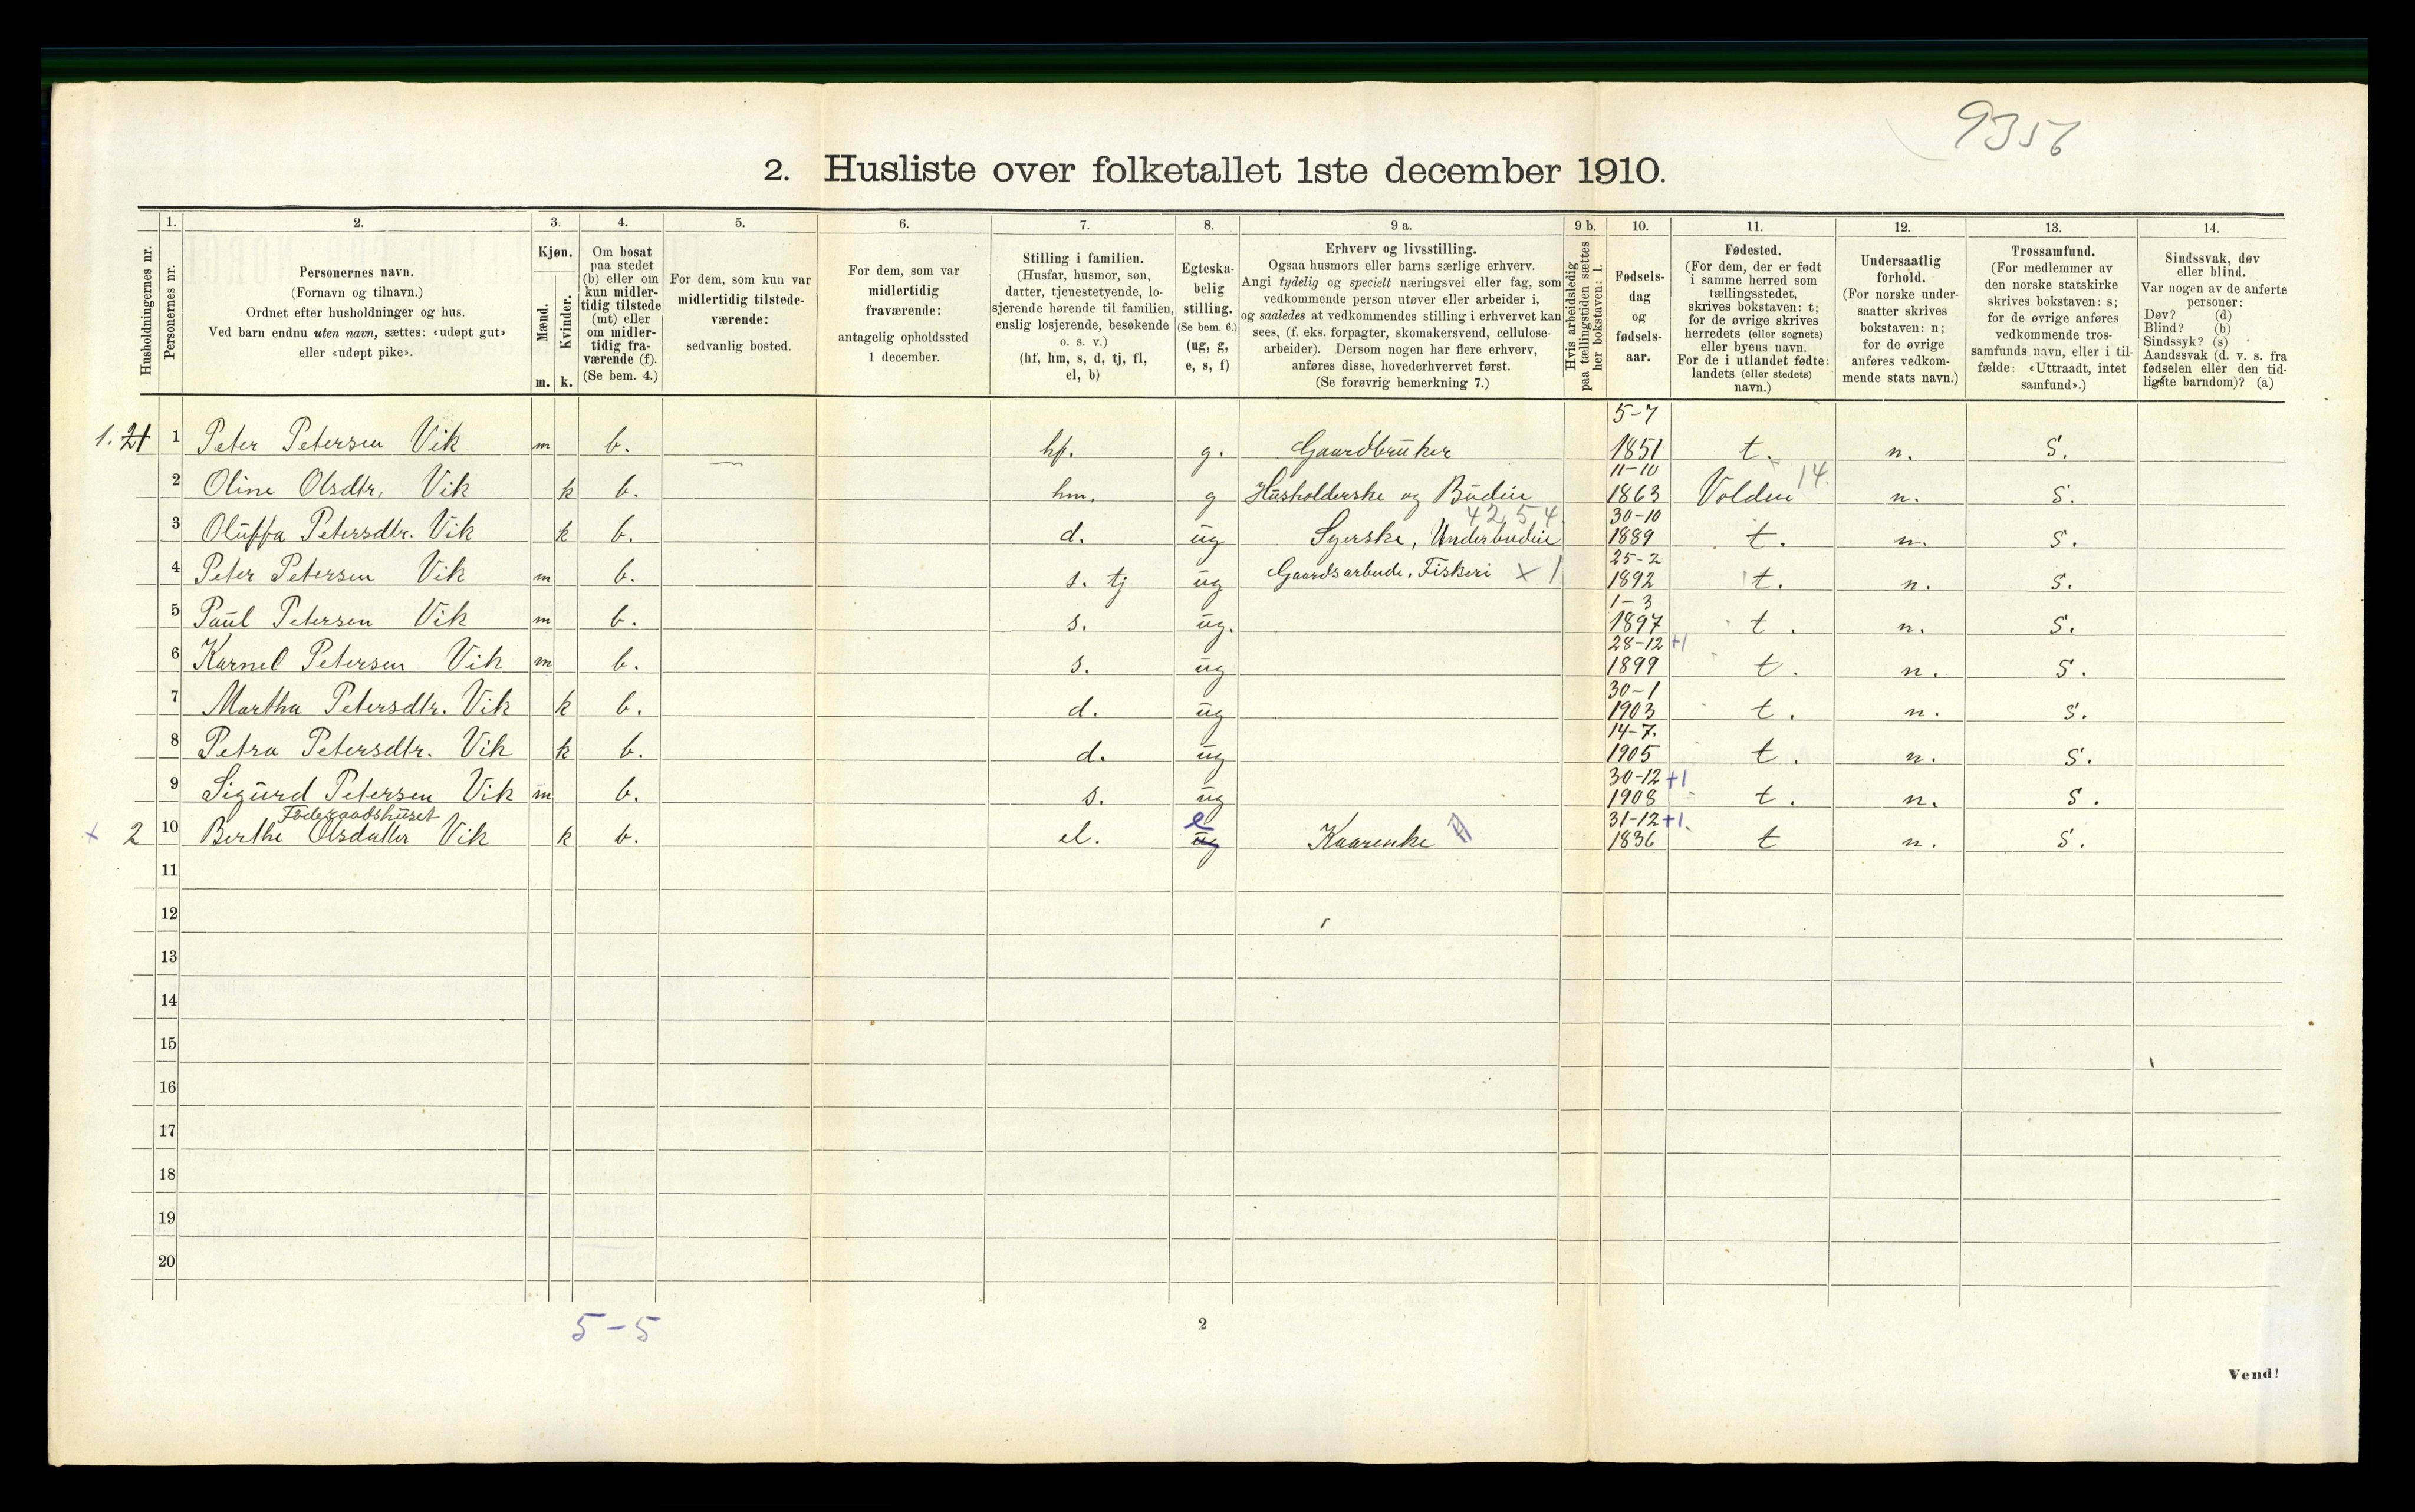 9356
2. Husliste over folketallet 1ste december 1910.
Husholdningernes nr.
1. Personernes nr.
2. Personernes navn.
(Fornavn og tilnavn.)
Ordnet efter husholdninger og hus.
Ved barn endnu uten navn, sættes: «udøpt gut»
eller «udøpt pike».
3. Kjøn.
Mænd. m.
Kvinder. k.
4. Om bosat
paa stedet
(b) eller om
kun midler-
tidig tilstede
(mt) eller
om midler-
tidig fra-
værende (f).
(Se bem. 4.)
5. For dem, som kun var
midlertidig tilstede-
værende:
sedvanlig bosted.
6. For dem, som var
midlertidig
fraværende:
antagelig opholdssted
1 december.
7. Stilling i familien.
(Husfar, husmor, søn,
datter, tjenestetyende, lo-
sjerende hørende til familien,
enslig losjerende, besøkende
o. s. v.)
(hf, hm, s, d, tj, fl,
el, b)
8. Egteska-
belig
stilling.
(Se bem. 6.)
(ug, g,
e, s, f)
9 a. Erhverv og livsstilling.
Ogsaa husmors eller barns særlige erhverv.
Angi tydelig og specielt næringsvei eller fag, som
vedkommende person utøver eller arbeider i,
og saaledes at vedkommendes stilling i erhvervet kan
sees, (f. eks. forpagter, skomakersvend, cellulose-
arbeider). Dersom nogen har flere erhverv,
anføres disse, hovederhvervet først.
(Se forøvrig bemerkning 7.)
9 b. Hvis arbeidsledig
paa tællingstiden sættes
her bokstaven: l.
10. Fødsels-
dag
og
fødsels-
aar.
11. Fødested.
(For dem, der er født
i samme herred som
tællingsstedet,
skrives bokstaven: t;
for de øvrige skrives
herredets (eller sognets)
eller byens navn.
For de i utlandet fødte:
landets (eller stedets)
navn.)
12. Undersaatlig
forhold.
(For norske under-
saatter skrives
bokstaven: n;
for de øvrige
anføres vedkom-
mende stats navn.)
13. Trossamfund.
(For medlemmer av
den norske statskirke
skrives bokstaven: s;
for de øvrige anføres
vedkommende tros-
samfunds navn, eller i til-
fælde: «Uttraadt, intet
samfund».)
14. Sindssvak, døv
eller blind.
Var nogen av de anførte
personer:
Døv? (d)
Blind? (b)
Sindssyk? (s)
Aandssvak (d. v. s. fra
fødselen eller den tid-
ligste barndom)? (a)
1. 1 Peter Petersen Vik m b. hf. g. Gaardbruker 5-7 1851 t. n. S.
2 Oline Olsdtr, Vik k b. hm. g Husholderske og Budeie 11-10 1863 Volden 14. n. S.
42,54.
3 Oluffa Petersdtr. Vik k b. d. ug Syerske, Underbudeie 30-10 1889 t. n. S.
4 Peter Petersen Vik m b. s. tj ug Gaardsarbeide, Fiskeri x 1 25-2 1892 t. n. S.
5 Paul Petersen Vik m b. s. ug. 1-3 1897 t. n. S.
6 Karnel Petersen Vik m b. s. ug 28-12 +1 1899 t. n. S.
7 Martha Petersdtr. Vik k b. d. ug 30-1 1903 t. n. S.
8 Petra Petersdtr. Vik k b. d. ug 14-7. 1905 t. n. S.
9 Sigurd Petersen Vik m b. s. ug 30-12 +1 1908 t. n. S.
Föderaadshuset
x 2 10 Berthe Olsdatter Vik k b. el. ug e Kaarenke 31-12 +1. 1836 t n. S.
11
12
13
14
15
16
17
18
19
20
5-5
2
Vend!